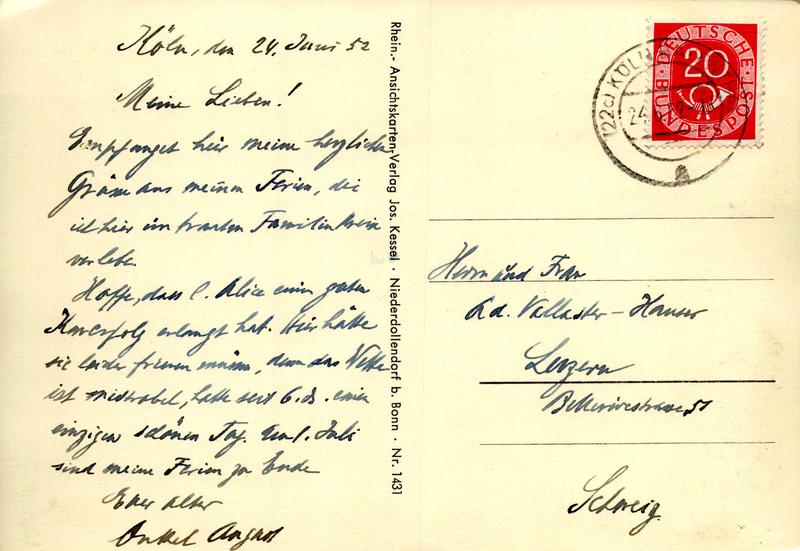 Köln, den 24. Juni 52
Meine Lieben!
Empfanget hier meine herzlichen
Grüsse aus meinen Ferien, die
ich hier im trauten Familienkreise
verlebe.
Hoffe, dass l. Alice einen guten
Kurerfolg erlangt hat. Hier hätte
sie leider frieren müssen, denn das Wetter
ist miserabel, hatte seit 6. ds. einen
einzigen schönen Tag. Am 1. Juli
sind meine Ferien zu Ende
Euer alter
Onkel August
Rhein.- Ansichtskarten-Verlag Jos. Kessel · Niederdollendorf b. Bonn · Nr. 1431
DEUTSCHE
20
BUNDESPOST
(22c) KÖLN
24.6.52
a
Herrn und Frau
Ad. Vallaster-Hauser
Luzern
Bellerivestrasse 51
Schweiz